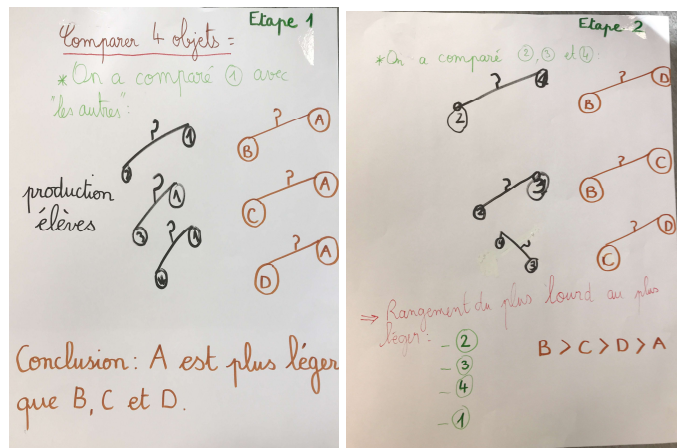 Etape 1
Comparer 4 objets :
* On a comparé ① avec
"les autres" :
?
1
2
?
A
B
?
1
3
?
A
C
production
élèves
?
1
?
A
D
Conclusion : A est plus léger
que B, C et D.
Etape 2
* On a comparé ②, ③ et ④
?
2
?
D
B
?
3
2
?
C
B
?
3
?
D
C
⇒ Rangement du plus lourd au plus
léger :
- ②
- ③
- ④
- ①
B > C > D > A